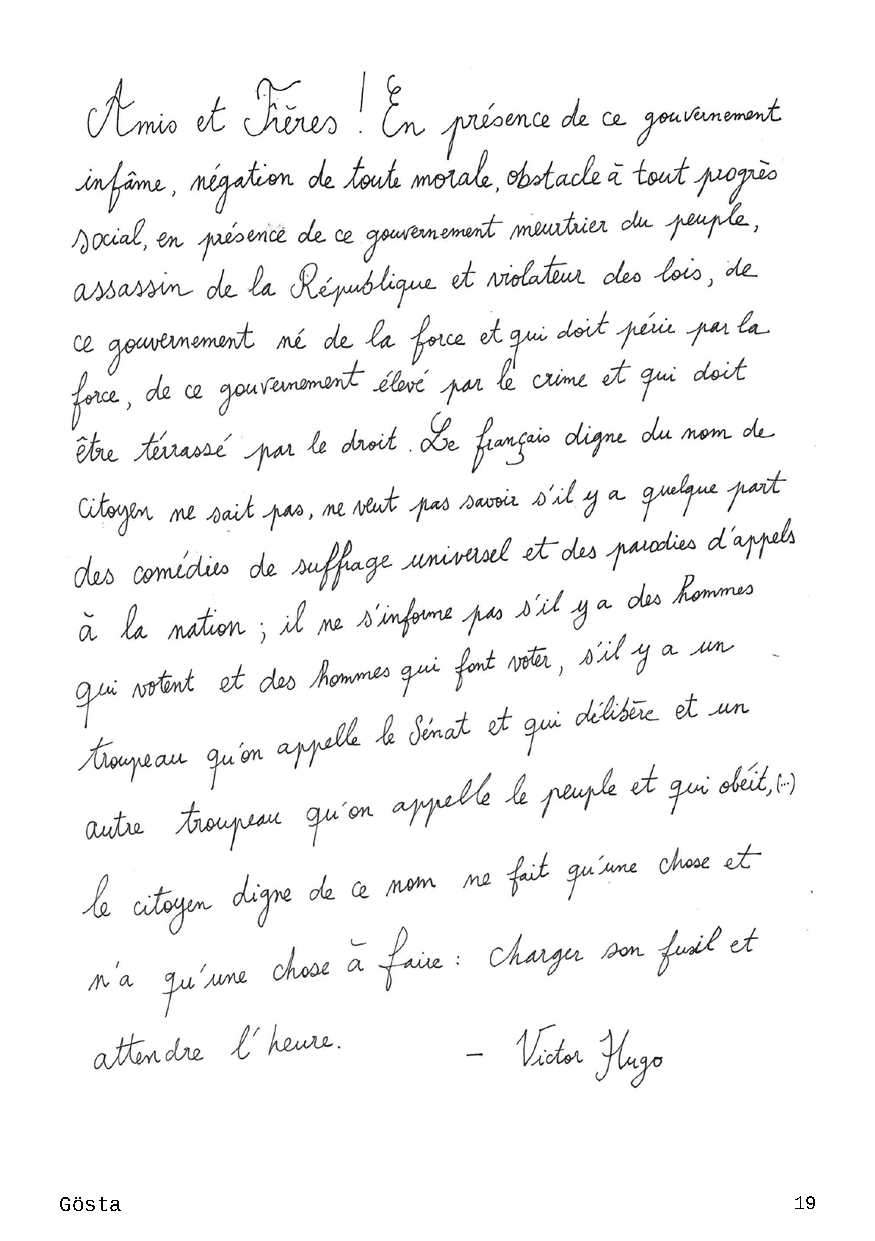 Amis et Frères ! En présence de ce gouvernement
infâme, négation de toute morale, obstacle à tout progrès
social, en présence de ce gouvernement meurtrier du peuple,
assassin de la République et violateur des lois, de
ce gouvernement né de la force et qui doit périr par la
force, de ce gouvernement élevé par le crime et qui doit
être térrassé par le droit. Le français digne du nom de
citoyen ne sait pas, ne veut pas savoir s'il y a quelque part
des comédies de suffrage universel et des parodies d'appels
à la nation ; il ne s'informe pas s'il y a des hommes
qui votent et des hommes qui font voter, s'il y a un
troupeau qu'on appelle le Sénat et qui délibère et un
autre troupeau qu'on appelle le peuple et qui obéit, (...)
le citoyen digne de ce nom ne fait qu'une chose et
n'a qu'une chose à faire : charger son fusil et
attendre l'heure.
- Victor Hugo
Gösta
19